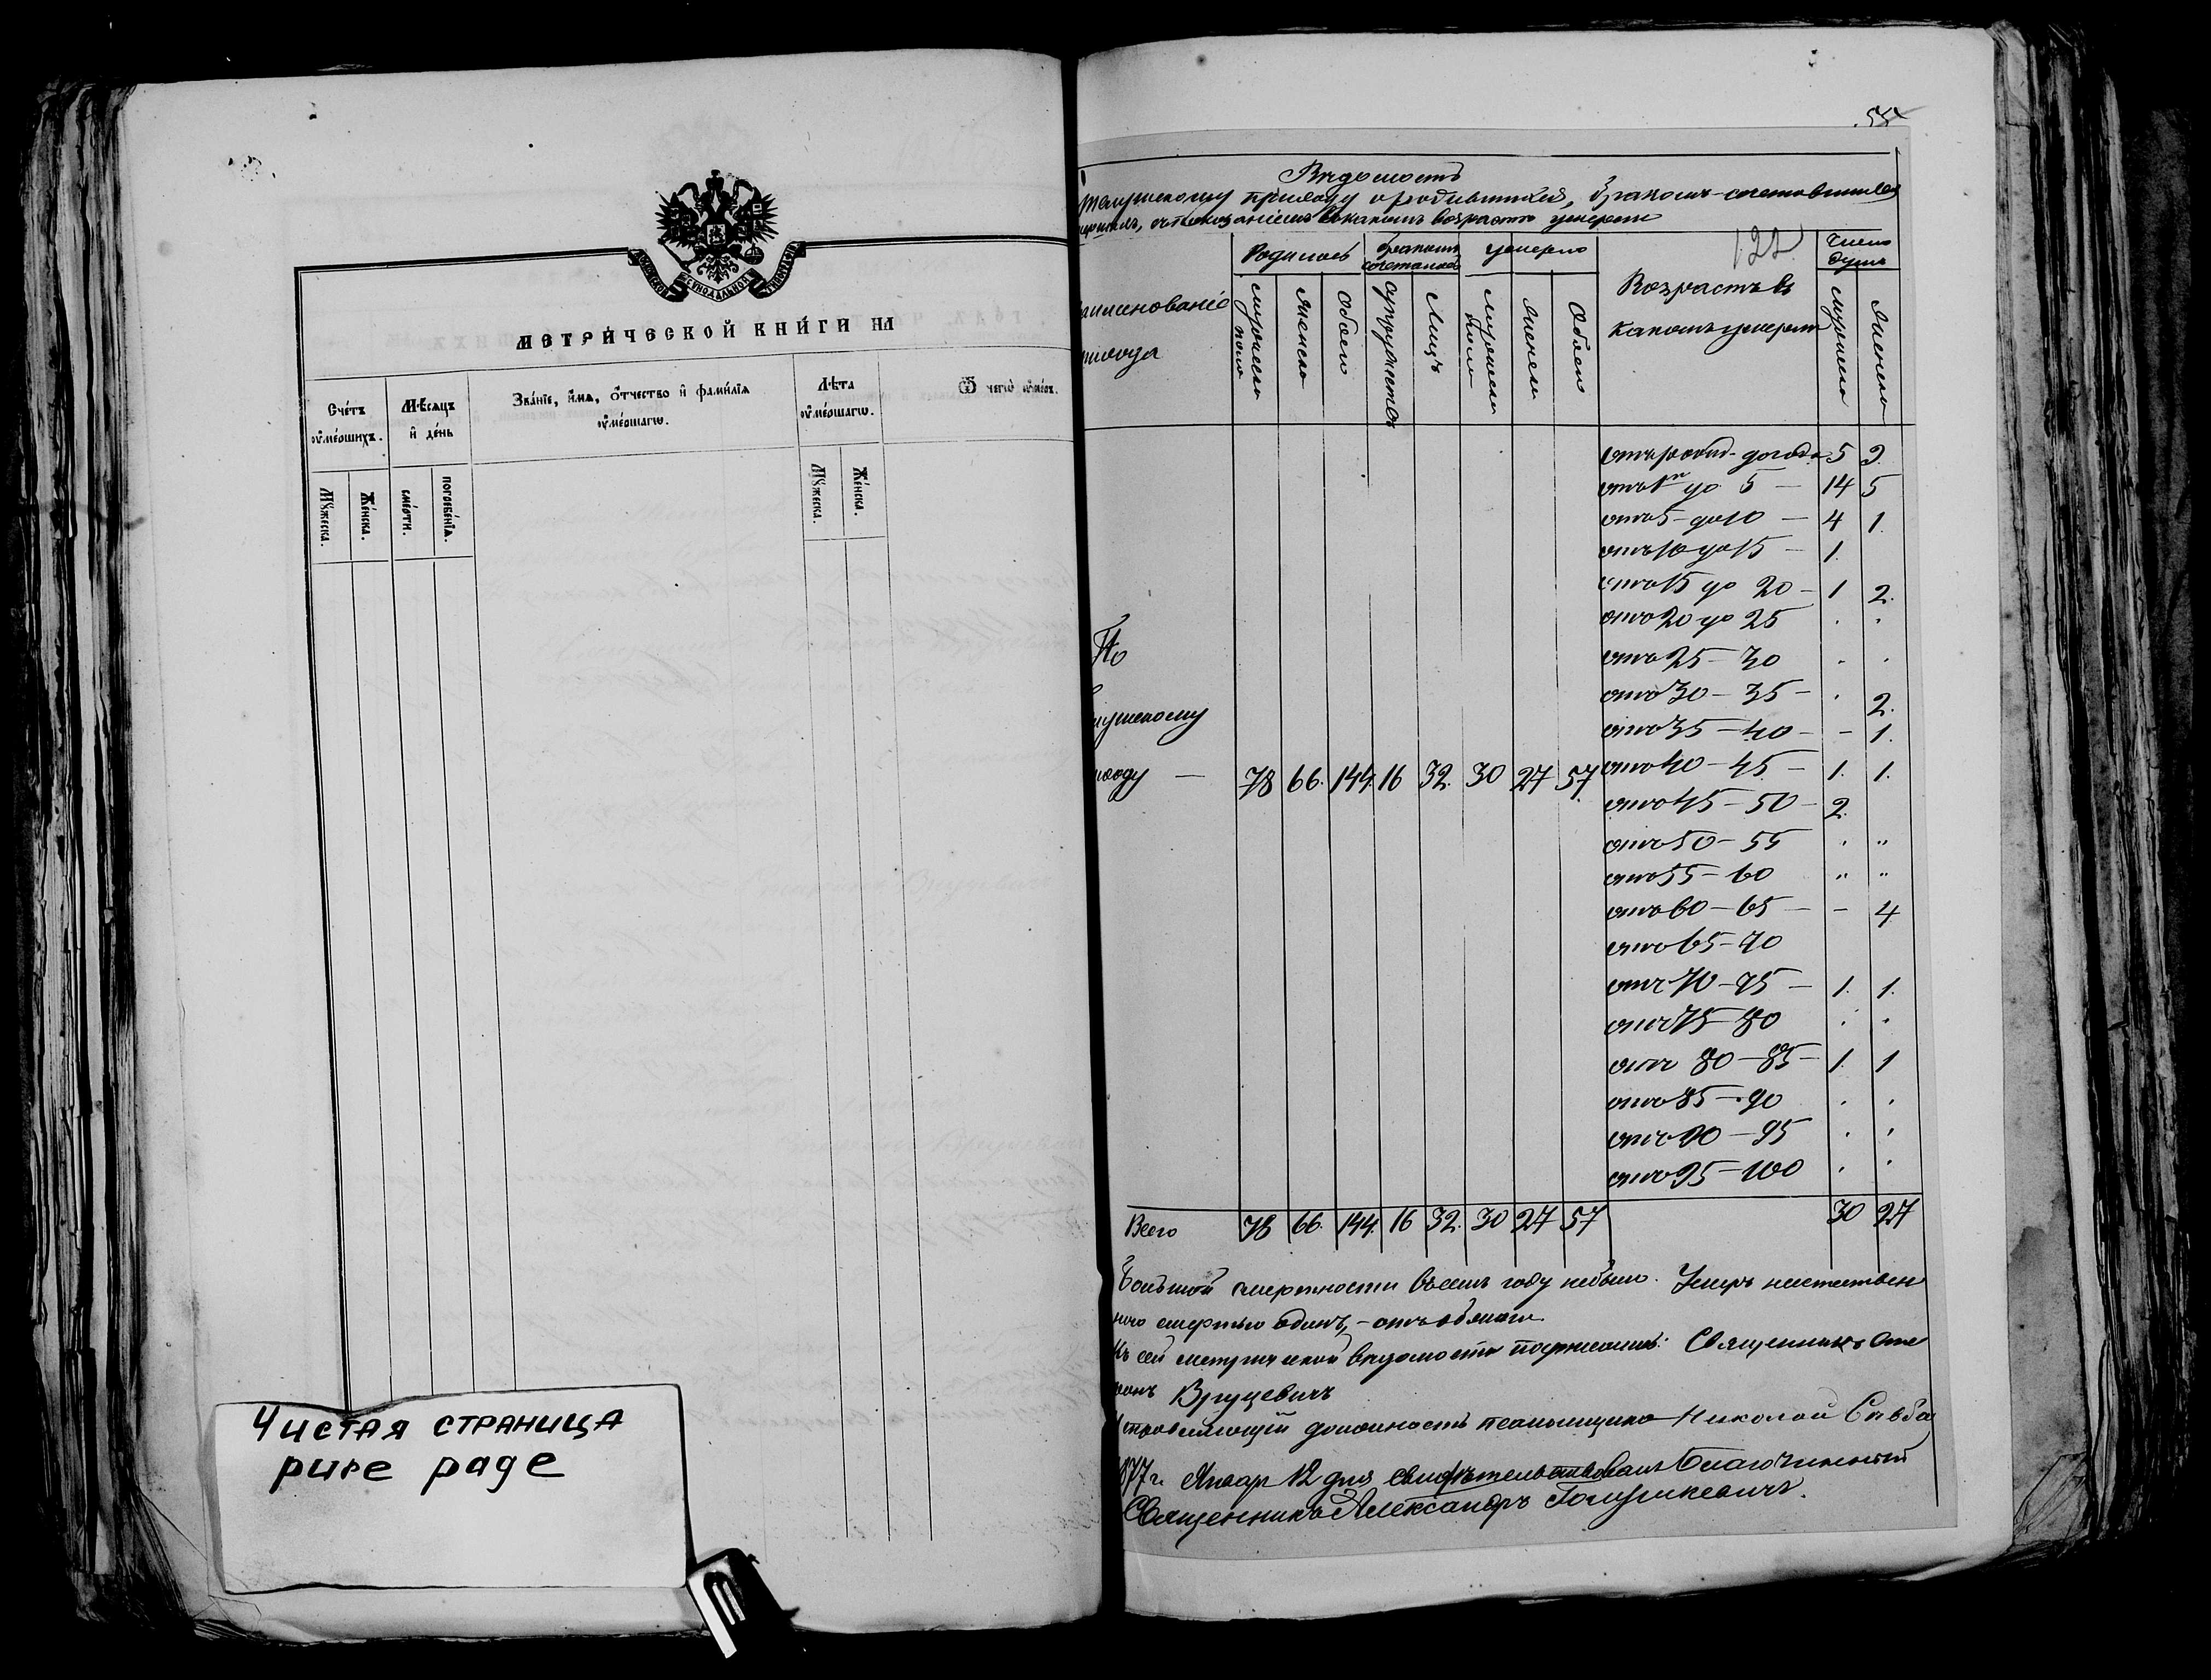 МЕТРИ́ЧЕСКОЙ КНИ́ГИ НА
Сче́тъ
ᲂу҆ме́ршихъ.
Мѣ́сяцъ
и҆ де́нь
Зва́нїе, и҆́мѧ, ѻ҆́тчество и҆ фами́лїѧ
ᲂу҆ме́ршагѡ.
Лѣ́та
ᲂу҆ме́ршагѡ.
Ѿ чегѡ̀ ᲂу҆́меръ.
Мꙋ́жеска.
Же́нска.
сме́рти.
погребе́нїѧ.
Мꙋ́жеска.
Же́нска.
Чистая страница
pure page
55
Вѣдомость
приходу о родившихся, бракомъ сочетавшихся
въ какомъ возрастѣ умерли
122
Родилось
бракомъ
сочеталось
умерло
Возрастъ въ
какомъ умерли
Число
душъ
именованіе
прихода
мужеска
пола
женска
Обоего
супружествъ
Лицъ
мужеска
пола
женска
Обоего
мужеска
женска
отъ рожд. до года 5 9.
отъ 1го до 5 — 14 5
отъ 5 - до 10 — 4 1.
отъ 10 до 15 — 1.
отъ 15 до 20 — 1 2.
отъ 20 до 25 . .
По
отъ 25 — 30 . .
отъ 30 — 35 — . 2.
отъ 35 — 40 — - 1.
приходу — 78 66. 144. 16 32. 30 27 57. отъ 40 — 45 — 1. 1.
отъ 45 — 50 — 2.
отъ 50 — 55 . "
отъ 55 — 60 " "
отъ 60 — 65 — - 4
отъ 65 — 70
отъ 70 — 75 — 1. 1.
отъ 75 — 80 . .
отъ 80 — 85 — 1. 1
отъ 85 — 90 . .
отъ 90 — 95 . .
отъ 95 — 100 . .
Всего 78 66. 144. 16 32. 30 27 57 30 27
Большой смертности въ семъ году небыло. Умеръ неестествен
ною смертью одинъ, - отъ
Къ сей метрической вѣдомости подписались: Священникъ Сте
фанъ Вруцевичъ
Исправляющій должность псаломщика Николай
1877 г. Январ 12 дня свидѣтельствовалъ Благочинный
Священникъ Александръ